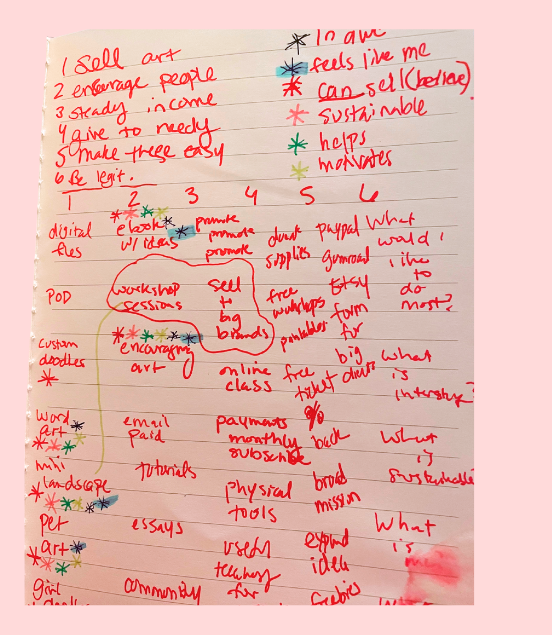 1 Sell art
2 encourage people
3 steady income
4 give to needy
5 make these easy
6 Be legit.
In awe
feels like me
can sell (believe)
sustainable
helps
motivates
1 2 3 4 5 6
digital
files
POD
custom
doodles
word
art
mini
landscape
pet
art
girl
ebook
w/ ideas
workshop
sessions
encouraging
art
email
paid
tutorials
essays
community
promote
promote
promote
sell
to
big
brands
online
class
payments
monthly
subscribe
physical
tools
used
for
supplies
free
workshops
printables
free
ticket
%
back
broad
mission
expand
idea
freebies
paypal
gumroad
Etsy
form
for
big
What
would I
like
to
do
most?
what
is
What
is
sustainable
What
is